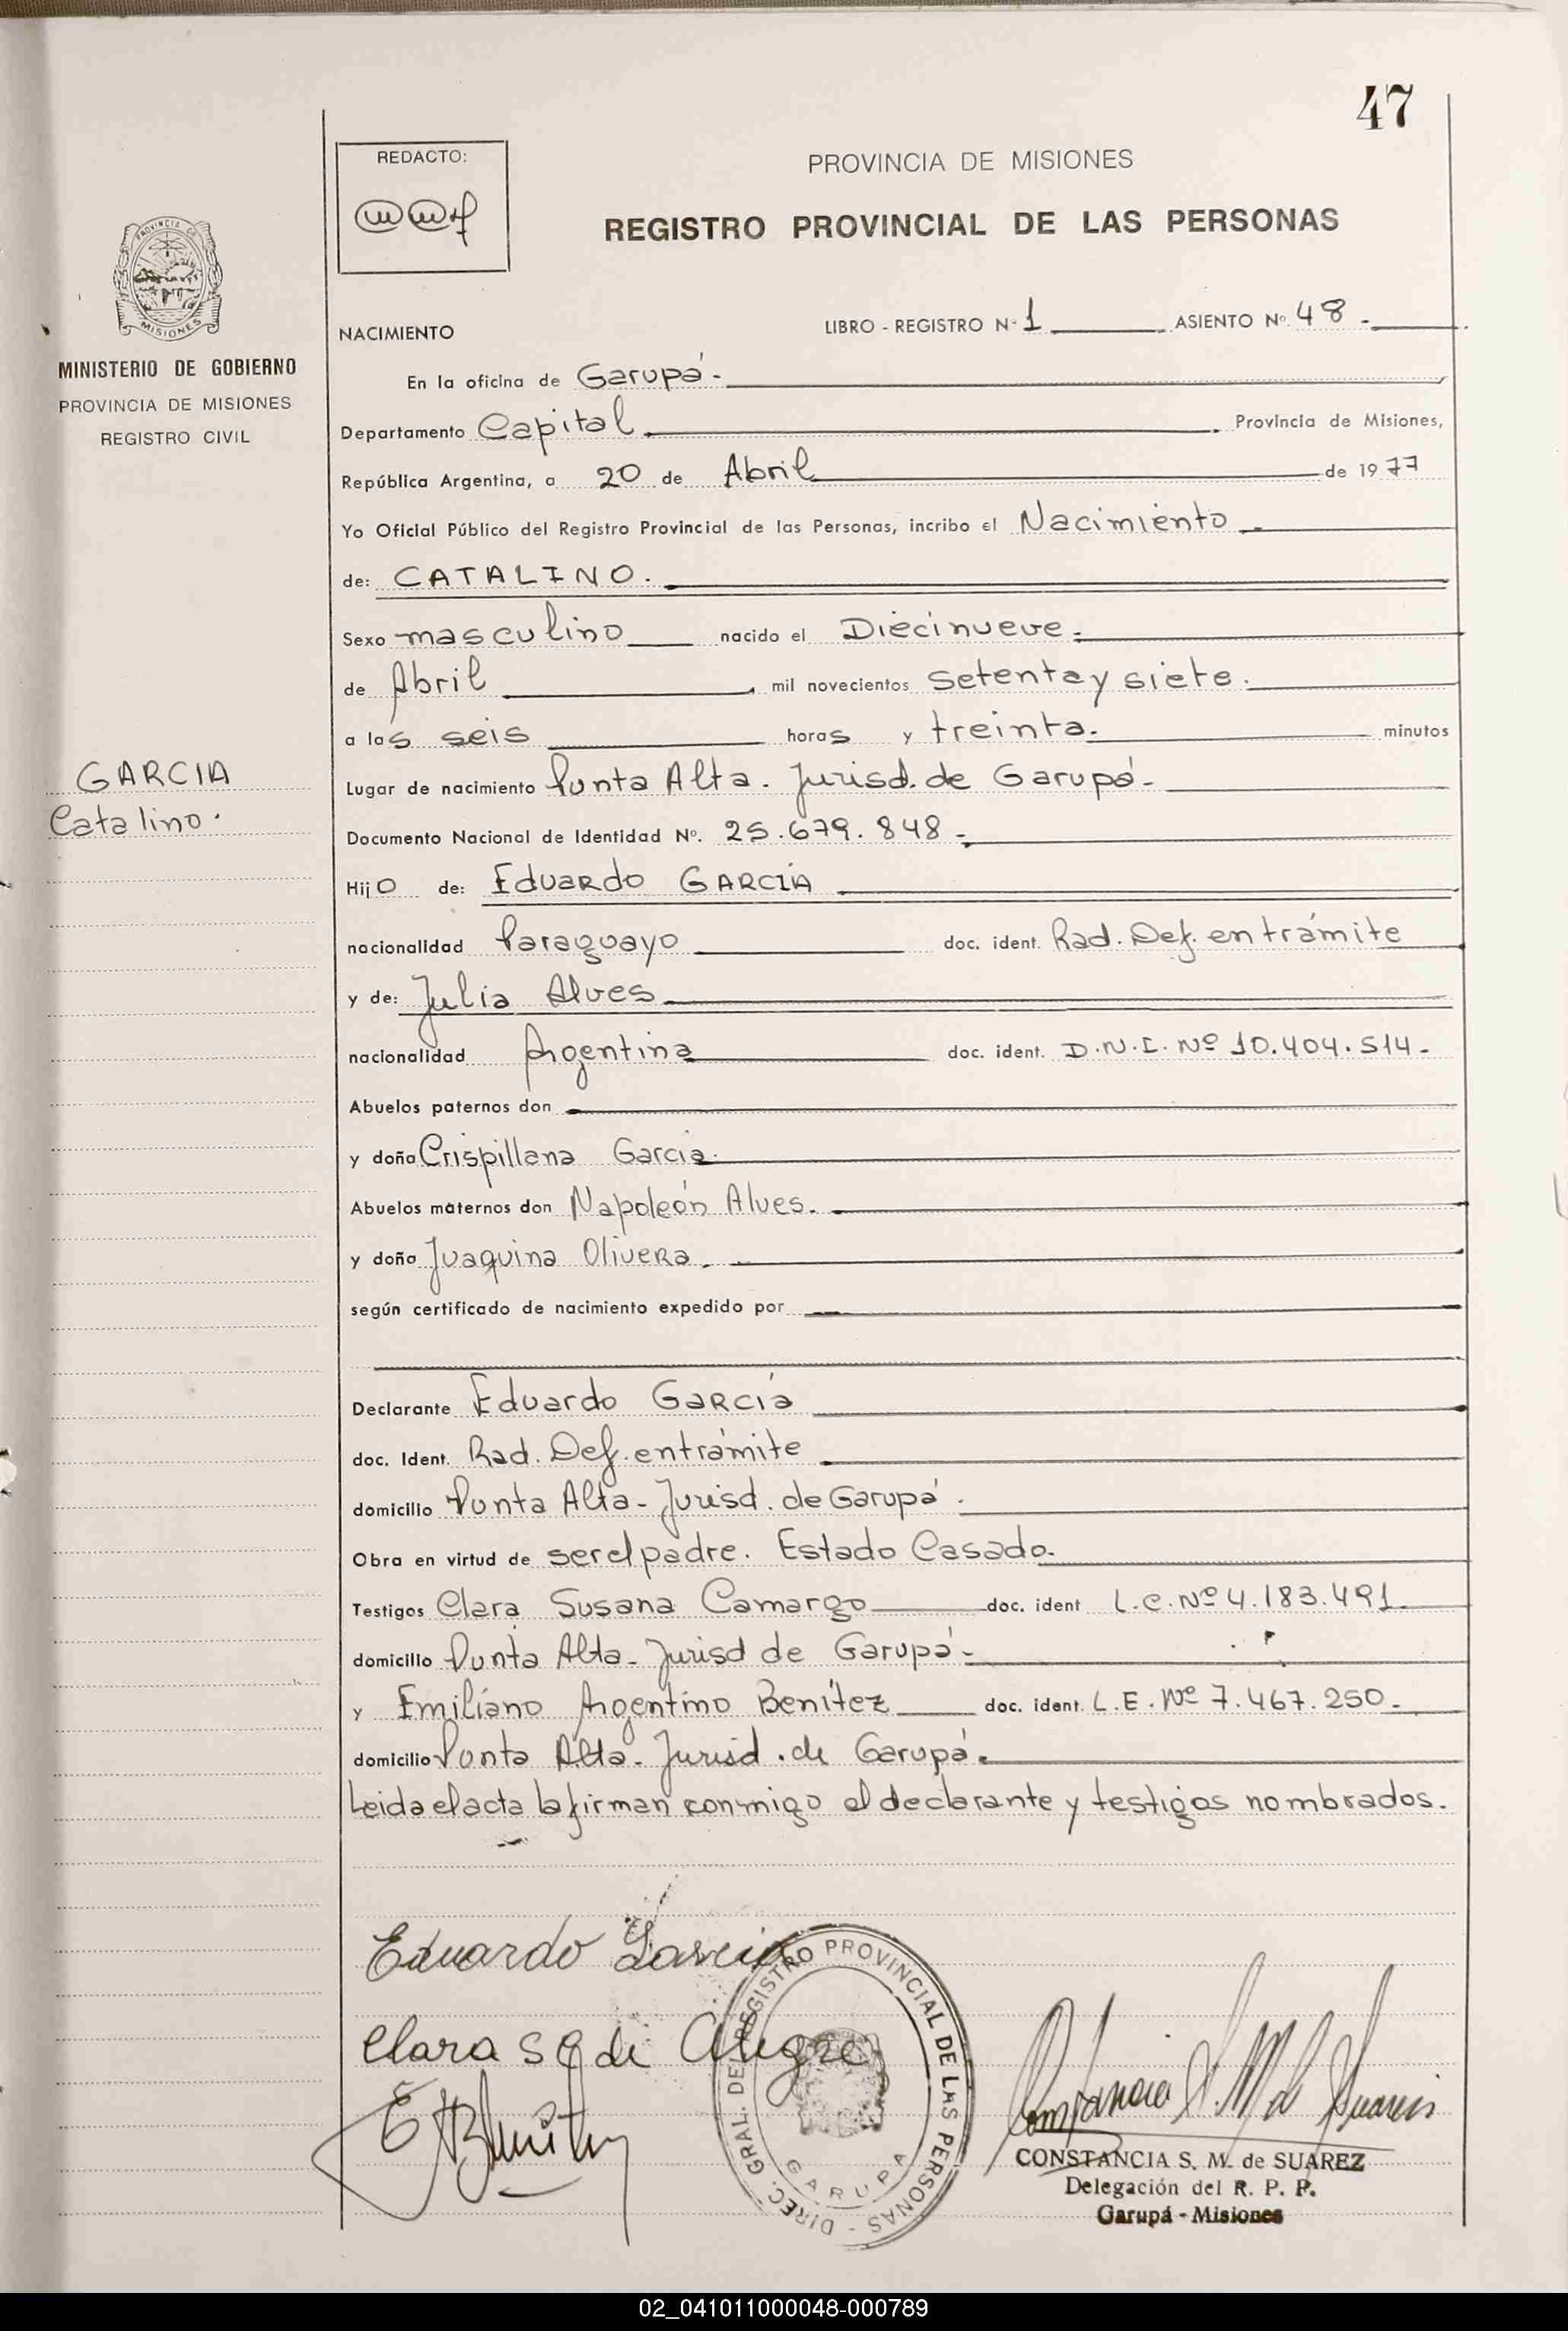 47
REDACTO:
PROVINCIA DE MISIONES
REGISTRO PROVINCIAL DE LAS PERSONAS
PROVINCIA DE
MISIONES
MINISTERIO DE GOBIERNO
PROVINCIA DE MISIONES
REGISTRO CIVIL
NACIMIENTO
LIBRO - REGISTRO Nº 1 ASIENTO Nº 48 -
En la oficina de Garupá -
Departamento Capital . Provincia de Misiones,
República Argentina, a 20 de Abril de 1977
Yo Oficial Público del Registro Provincial de las Personas, incribo el Nacimiento -
de: CATALINO.
Sexo masculino nacido el Diecinueve -
de Abril , mil novecientos setenta y siete.
a las seis horas y treinta. minutos
GARCIA
Catalino.
Lugar de nacimiento Punta Alta. Jurisd. de Garupá -
Documento Nacional de Identidad Nº. 25.679.848 -
Hijo de: Eduardo GARCIA
nacionalidad Paraguayo doc. ident. Rad. Def. en trámite
y de: Julia Alves
nacionalidad Argentina doc. ident. D.N.I. Nº 10.404.514 -
Abuelos paternos don
y doña Crispillana Garcia.
Abuelos maternos don Napoleón Alves.
y doña Juaquina Olivera.
según certificado de nacimiento expedido por
Declarante Eduardo García
doc. Ident. Rad. Def. en trámite
domicilio Punta Alta - Jurisd. de Garupá.
Obra en virtud de ser el padre. Estado Casado.
Testigos Clara Susana Camargo doc. ident L.C. Nº 4.183.491.
domicilio Punta Alta - Jurisd de Garupá -
y Emiliano Argentino Benítez doc. ident. L.E. Nº 7.467.250 -
domicilio Punta Alta - Jurisd. de Garupá.
Leida el acta la firman conmigo el declarante y testigos nombrados.
Eduardo Garcia
Clara S C de Alegre
E A Benítez
DIREC. GRAL. DEL REGISTRO PROVINCIAL DE LAS PERSONAS -
GARUPA
Constancia S. M. de Suarez
CONSTANCIA S. M. de SUAREZ
Delegación del R. P. P.
Garupá - Misiones
02_041011000048-000789